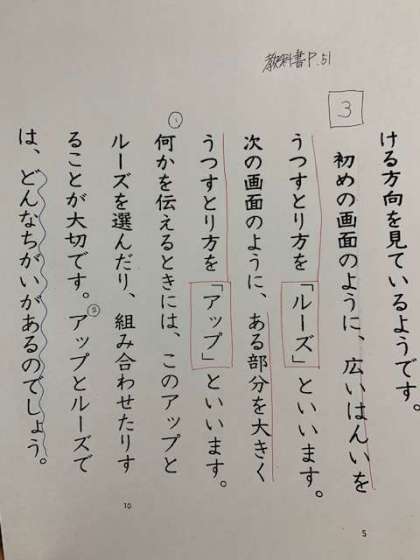 教科書P.51
3
ける方向を見ているようです。
初めの画面のように、広いはんいを
うつすとり方を「ルーズ」といいます。
次の画面のように、ある部分を大きく
うつすとり方を「アップ」といいます。
①
何かを伝えるときには、このアップと
ルーズを選んだり、組み合わせたりす
ることが大切です。アップとルーズで
②
は、どんなちがいがあるのでしょう。
5
10